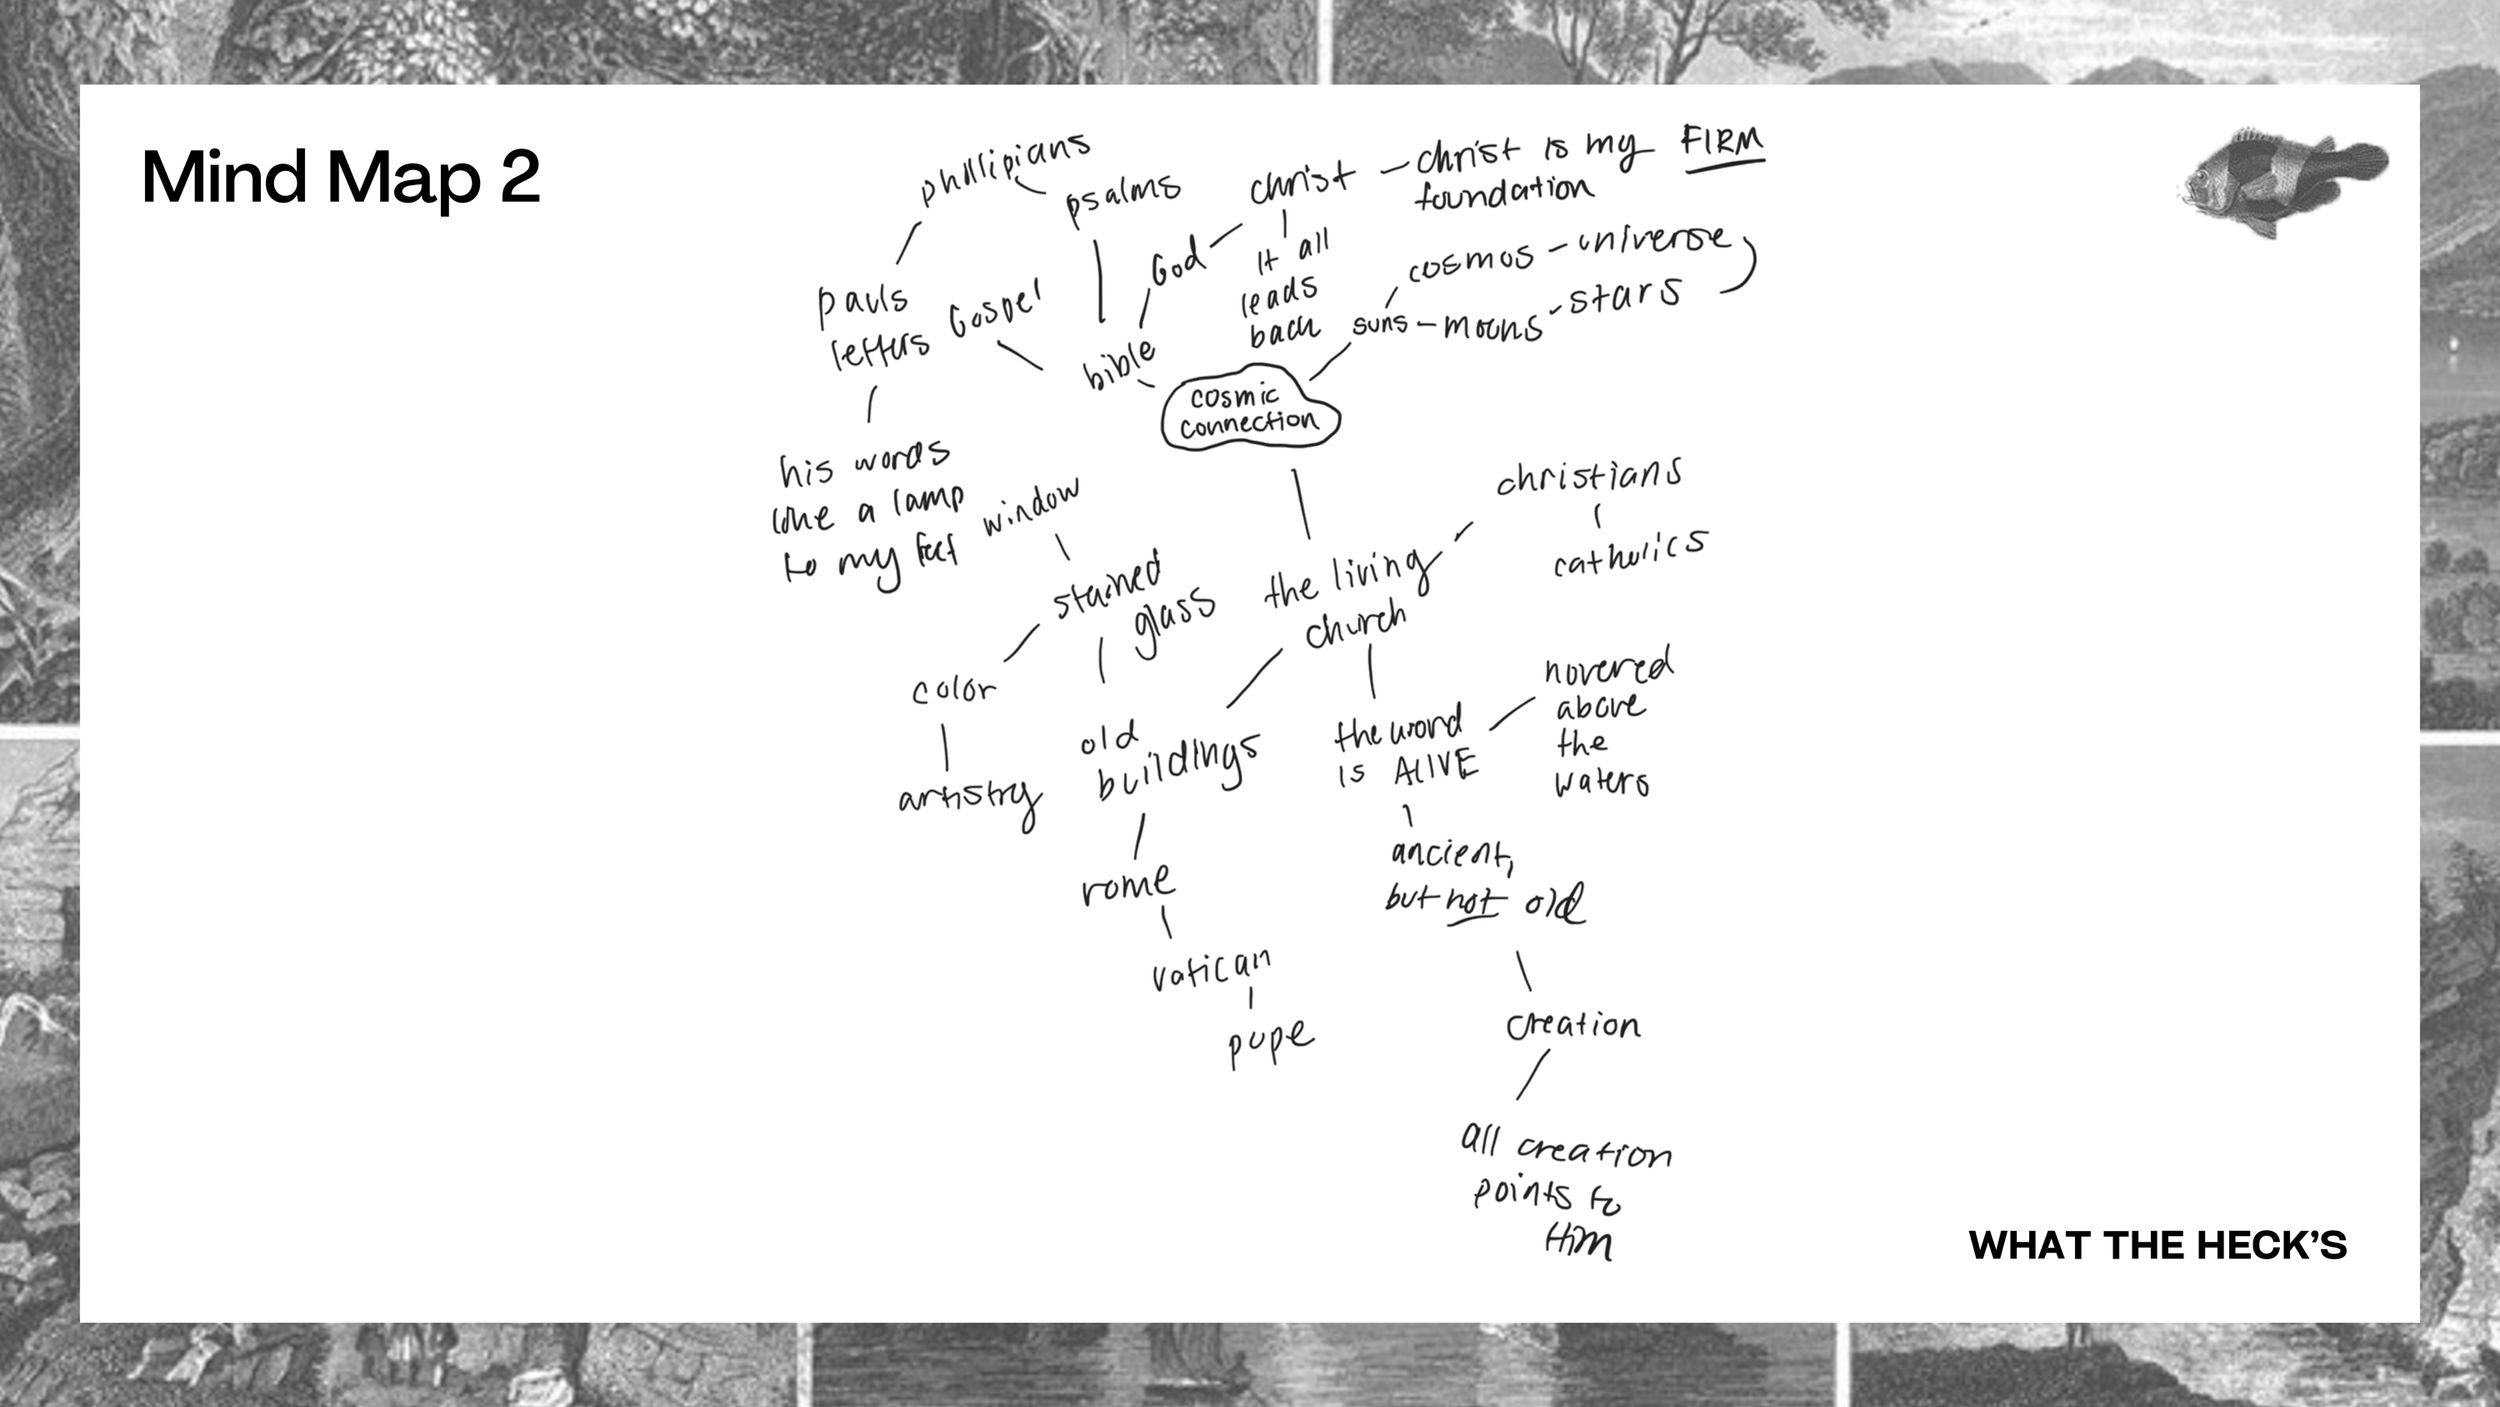 Mind Map 2
phillipians
psalms
christ
christ is my FIRM
foundation
God
it all
leads
back
cosmos - universe
suns - moons - stars
pauls
letters
Gospel
bible
cosmic
connection
his words
like a lamp
to my feet
window
stained
glass
color
artistry
the living
church
christians
catholics
old
buildings
rome
vatican
pope
the word
is ALIVE
hovered
above
the
waters
ancient,
but not old
creation
all creation
points to
Him
WHAT THE HECK'S